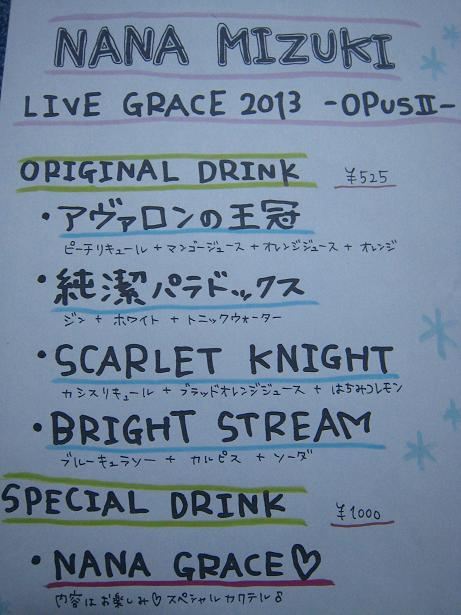 NANA MIZUKI
LIVE GRACE 2013 -OPUSⅡ-
ORIGINAL DRINK ¥525
・アヴァロンの王冠
ピーチリキュール + マンゴージュース + オレンジジュース + オレンジ
・純潔パラドックス
ジン + ホワイト + トニックウォーター
・SCARLET KNIGHT
カシスリキュール + ブラッドオレンジジュース + はちみつレモン
・BRIGHT STREAM
ブルーキュラソー + カルピス + ソーダ
SPECIAL DRINK ¥1000
・NANA GRACE♡
内容はお楽しみ♡スペシャルカクテル